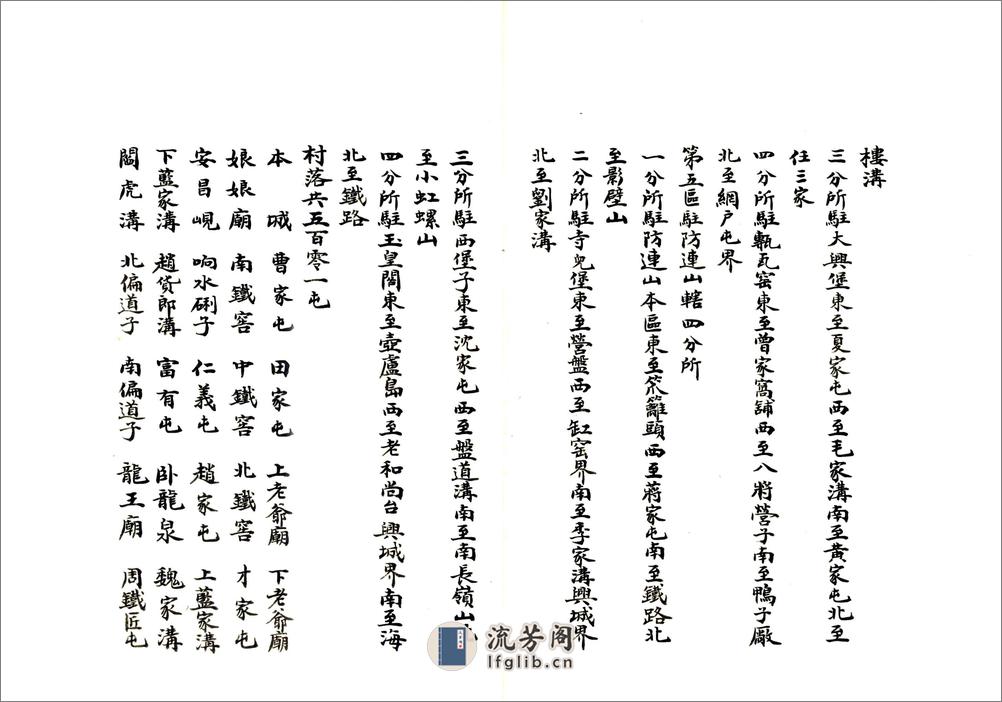 樓溝
三分所駐大興堡東至夏家屯西至毛家溝南至黃家屯北至
任三家
四分所駐甎瓦窰東至曾家窩舖西至八將營子南至鴨子厰
北至網戶屯界
第五區駐防連山轄四分所
一分所駐防連山本區東至笊籬頭西至蔣家屯南至鐵路北
至影壁山
二分所駐寺兒堡東至營盤西至缸窑界南至李家溝興城界
北至劉家溝
三分所駐西堡子東至沈家屯西至盤道溝南至南長嶺山
至小虹螺山
四分所駐玉皇閣東至壺盧島西至老和尚台興城界南至海
北至鐵路
村落共五百零一屯
本城 曹家屯 田家屯 上老爺廟 下老爺廟
娘娘廟 南鐵窖 中鐵窖 北鐵窖 才家屯
安昌峴 响水硎子 仁義屯 趙家屯 上藍家溝
下藍家溝 趙貨郎溝 富有屯 卧龍泉 魏家溝
闞虎溝 北偏道子 南偏道子 龍王廟 周鐵匠屯
流芳阁
lfglib.cn